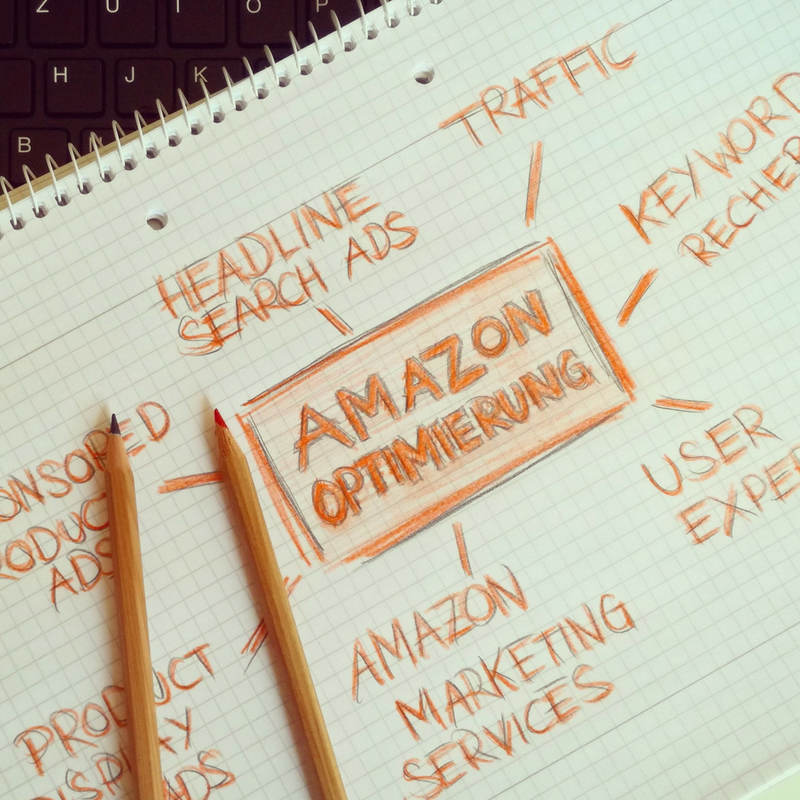 Z U I O P
H J K
B
TRAFFIC
KEYWORD
RECHER
HEADLINE
SEARCH ADS
AMAZON
OPTIMIERUNG
ONSORED
RODUC
ADS
USER
EXPER
AMAZON
MARKETING
SERVICES
PRODUCT
DISPLAY
ADS